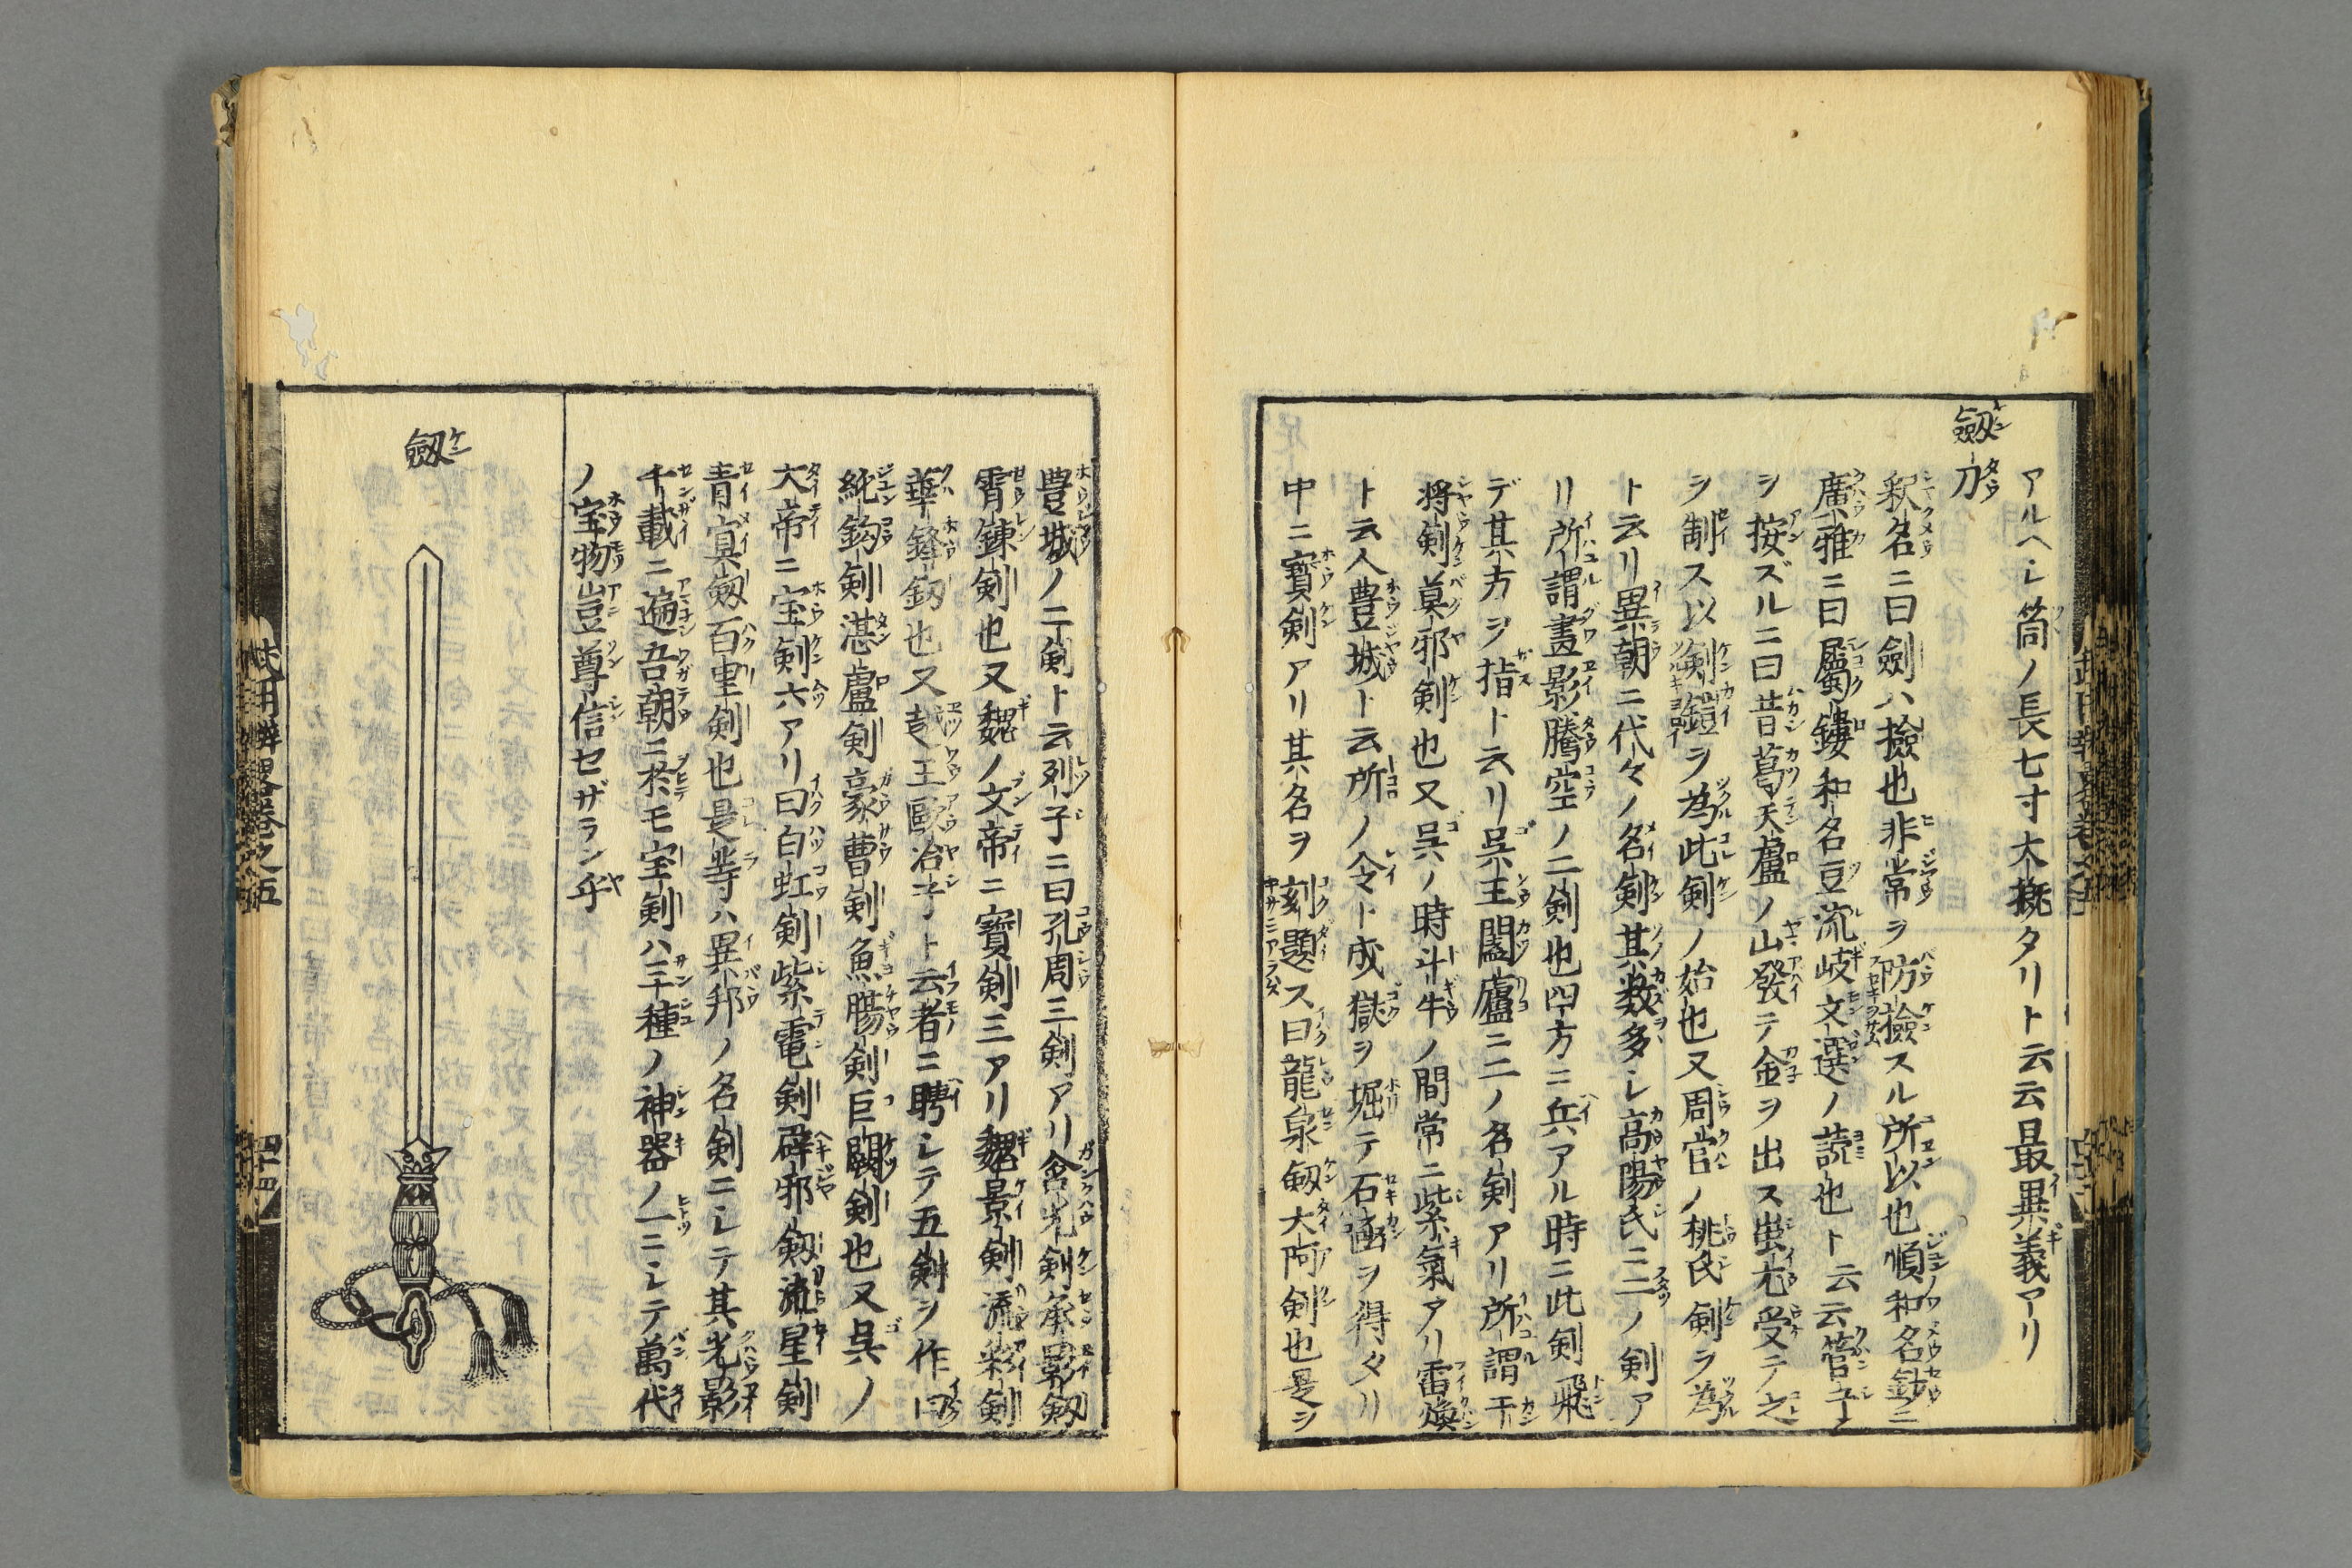 アルヘシ筒ノ長七寸大概タリト云云最異義アリ
劔刀
釈名ニ曰劍ハ撿也非常ヲ防撿スル所以也順和名
廣雅ニ曰屬鏤和名豆流岐文選ノ読也ト云云管子
ヲ按ズルニ曰昔葛天盧ノ山發テ金ヲ出ス蚩尤受テ之
ヲ制ス以剣鎧ヲ為此剣ノ始也又周官ノ桃氏剣ヲ為
ト云リ異朝ニ代々ノ名剣其数多シ高陽氏ニ二ノ剣ア
リ所謂畫影騰空ノ二剣也四方ニ兵アル時ニ此剣飛
デ其方ヲ指ト云リ呉王闔廬ニ二ノ名剣アリ所謂干
将剣莫邪剣也又呉ノ時斗牛ノ間常ニ紫氣アリ雷煥
ト云人豊城ト云所ノ令ト成獄ヲ堀テ石函ヲ得タリ
中ニ寳剣アリ其名ヲ刻題ス曰龍泉劔大阿剣也是ヲ
豊城ノ二剣ト云列子ニ曰孔周三剣アリ含光剣承影劔
霄錬剣也又魏ノ文帝ニ寳剣三アリ魏景剣流彩剣
華鋒剱也又越王歐冶子ト云者ニ聘シテ五剣ヲ作曰
純鈎剣湛盧剣豪曹剣魚腸剣巨闕剣也又呉ノ
大帝ニ宝剣六アリ曰白虹剣紫電剣辟邪劔流星剣
青冥劔百里剣也是等ハ異邦ノ名剣ニシテ其光影
千載ニ遍吾朝ニ於モ宝剣ハ三種ノ神器ノ一ニシテ萬代
ノ宝物豈尊信セザラン乎
劔
武用辨畧巻之五
四十四